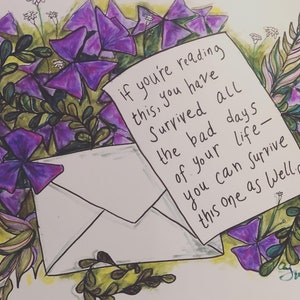 if you're reading
this, you have
survived all
the bad days
of your life—
you can survive
this one as well.